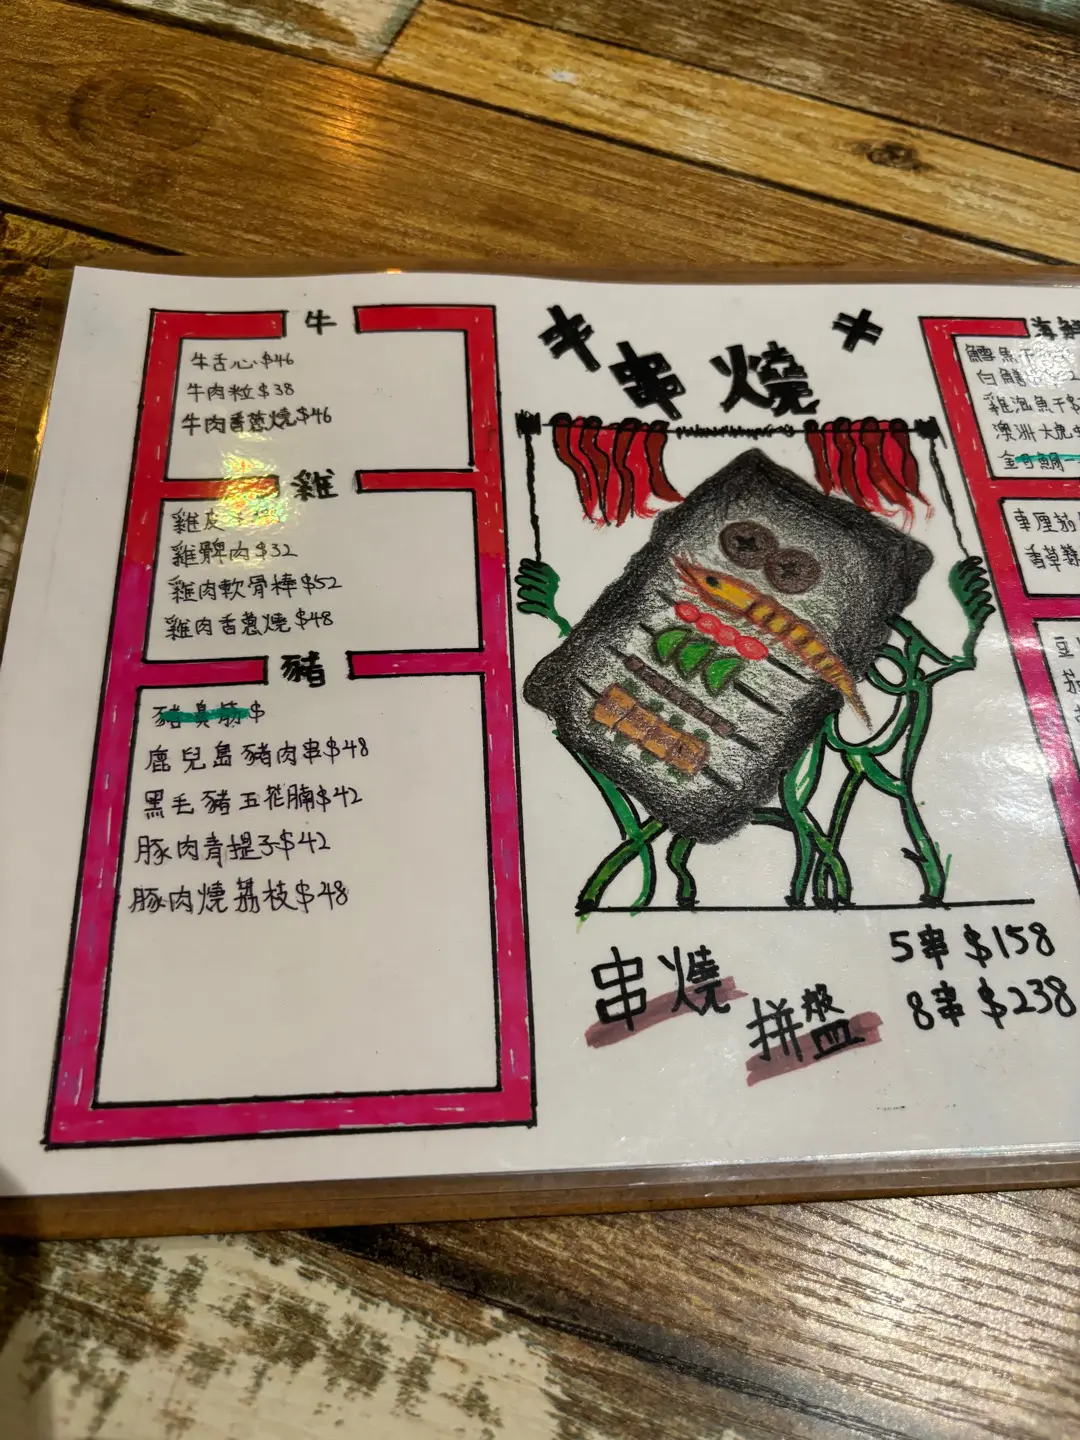 牛
牛舌心$46
牛肉粒$38
牛肉香蔥燒$46
雞
雞皮
雞髀肉$32
雞肉軟骨棒$52
雞肉香蔥燒$48
豬
豬臭筋$
鹿兒島豬肉串$48
黑毛豬五花腩$42
豚肉青提子$42
豚肉燒荔枝$48
串燒
串燒
拼盤
5串$158
8串$238
海鮮
鱈魚干
白鱔
雞泡魚干$
澳洲大虎
金目鯛
車厘茄
香草
豆
茄